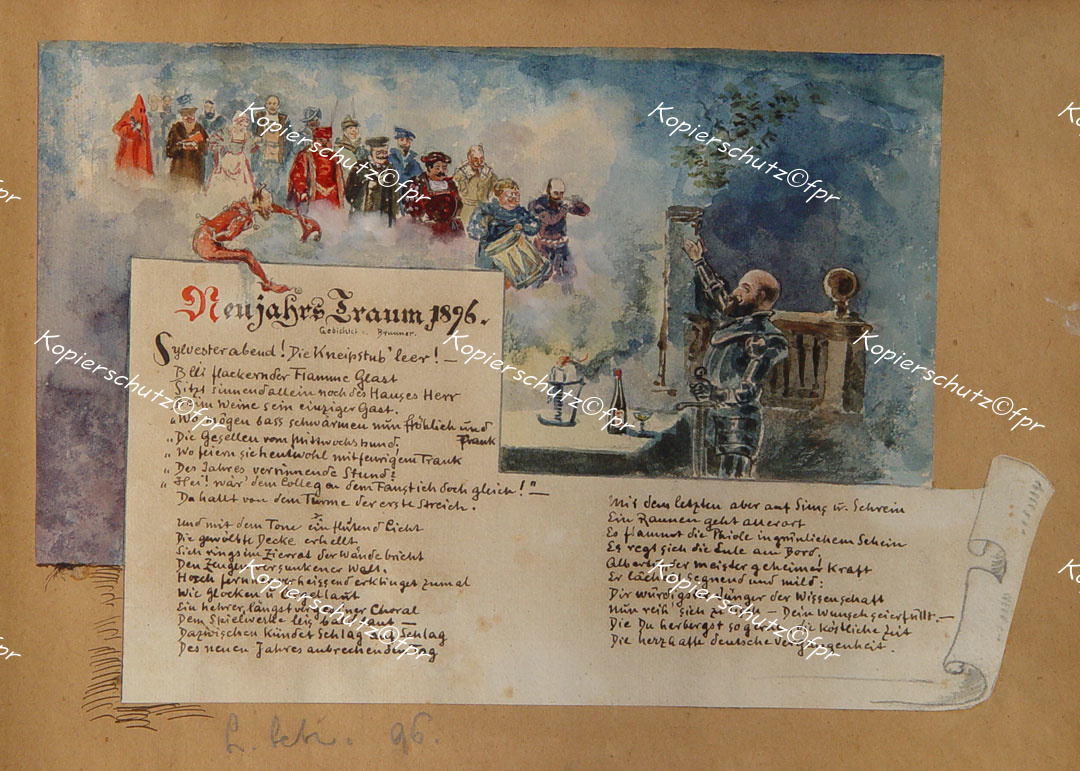 Neujahrs Traum 1896.
Gedichtet v. Brunner.
Sylvesterabend! Die Kneipstub' leer! —
Bei flackernder Flamme Glast
Sitzt sinnend allein noch des Hauses Herr
Beim Weine sein einziger Gast.
„Wo mögen bass schwärmen nun fröhlich und frank
„Die Gesellen vom Mittwochsbund,
„Wo feiern sie heut wohl mit feurigem Trank
„Des Jahres verrinnende Stund?
„Hei! wär' dem Colleg
Da hallt von dem Turme der erste Streich.
Und mit dem Tone ein flutend Licht
Die gewölbte Decke erhellt
Sich rings im Zierrat der Wände bricht
Den Zeugen versunkener Welt.
Horch fernher verheissend erklinget zumal
Wie Glocken u Orgellaut
Ein hehrer, längst vergangener Choral
Dem Spielwerke bald laut —
Dazwischen kündet Schlag auf Schlag
Des neuen Jahres anbrechenden Tag
Mit dem letzten aber auf Sims u. Schrein
Ein Raunen geht allerort
Es flammt die Phiole in grünlichem Schein
Es regt sich die Eule am Bord,
Albertus der meister geheimer Kraft
Er lächelt segnend und mild:
Dir würdigster Jünger der Wissenschaft
Nun reih' sich zu — Dein Wunsch sei erfüllt. —
Die Du herbergst so gerne die köstliche Zeit
Die herzhafte deutsche Vergangenheit.
96.
Kopierschutz©fpr
Kopierschutz©fpr
Kopierschutz©fpr
Kopierschutz©fpr
Kopierschutz©fpr
Kopierschutz©fpr
Kopierschutz©fpr